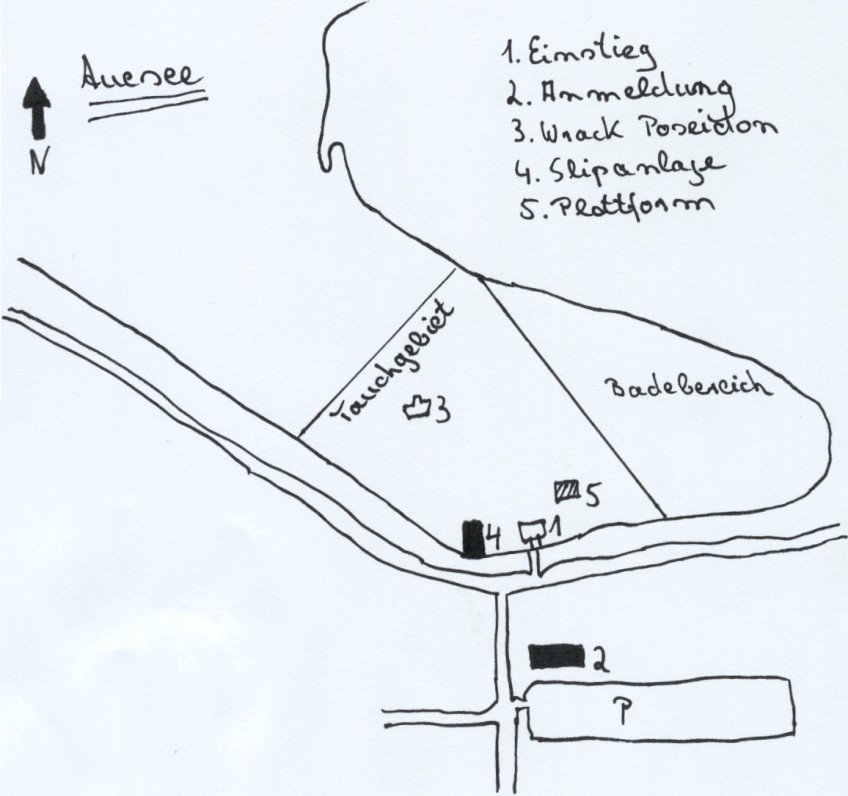 Auesee
N
1. Einstieg
2. Anmeldung
3. Wrack Poseidon
4. Slipanlage
5. Plattform
Tauchgebiet
Badebereich
3
5
4
1
2
P